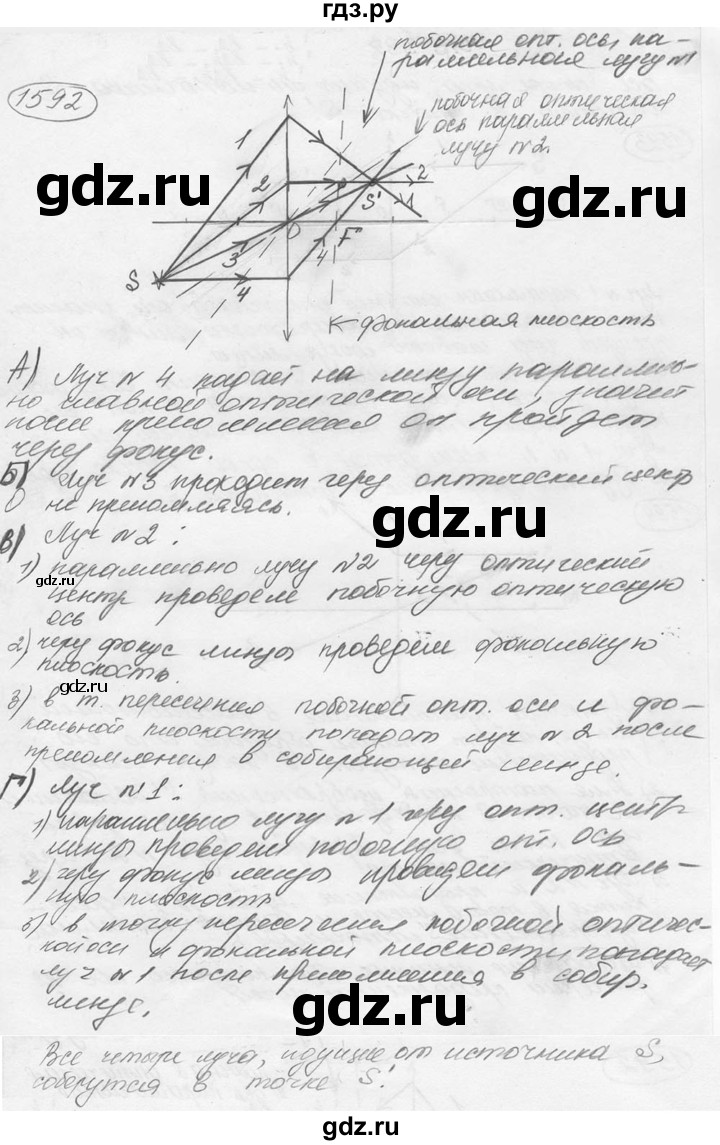 гдз.ру
побочная опт. ось, па-
раллельная лучу №1
1592
побочная оптическая
ось параллельная
лучу №2.
gdz.ru
1
2
2
S'
1
O
F
3
4
S
4
фокальная плоскость
gdz.ru
А) Луч №4 падает на линзу параллель-
но главной оптической оси, значит
после преломления он пройдет
через фокус.
Б) Луч №3 проходит через оптический центр
не преломляясь.
gdz.ru
В) Луч №2:
1) параллельно лучу №2 через оптический
центр проведем побочную оптическую
ось
gdz.ru
2) через фокус линзы проведём фокальную
плоскость.
gdz.ru
3) в т. пересечения побочной опт. оси и фо-
кальной плоскости попадает луч №2 после
преломления в собирающей линзе.
gdz.ru
Г) Луч №1:
1) параллельно лучу №1 через опт. центр
линзы проведем побочную опт. ось
2) через фокус линзы проведем фокаль-
ную плоскость
gdz.ru
3) в точку пересечения побочной оптичес-
кой оси и фокальной плоскости попадает
луч №1 после преломления в собир.
линзе.
gdz.ru
Все четыре луча, идущие от источника S,
соберутся в точке S'.
gdz.ru